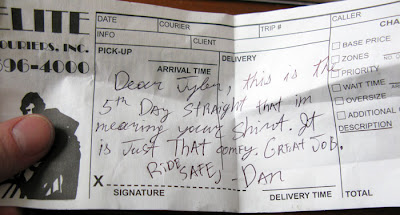 ELITE
COURIERS, INC.
396-4000
DATE
COURIER
TRIP #
CALLER
INFO
CLIENT
CHA
PICK-UP
DELIVERY
BASE PRICE
ZONES
PRIORITY
WAIT TIME
OVERSIZE
ADDITIONAL
DESCRIPTION
ARRIVAL TIME
Dear Tyler, this is the
5th Day straight that im
wearing your shirt. It
is Just That comfy. GREAT JOB.
RIDE SAFE, -Dan
X
SIGNATURE
DELIVERY TIME
TOTAL